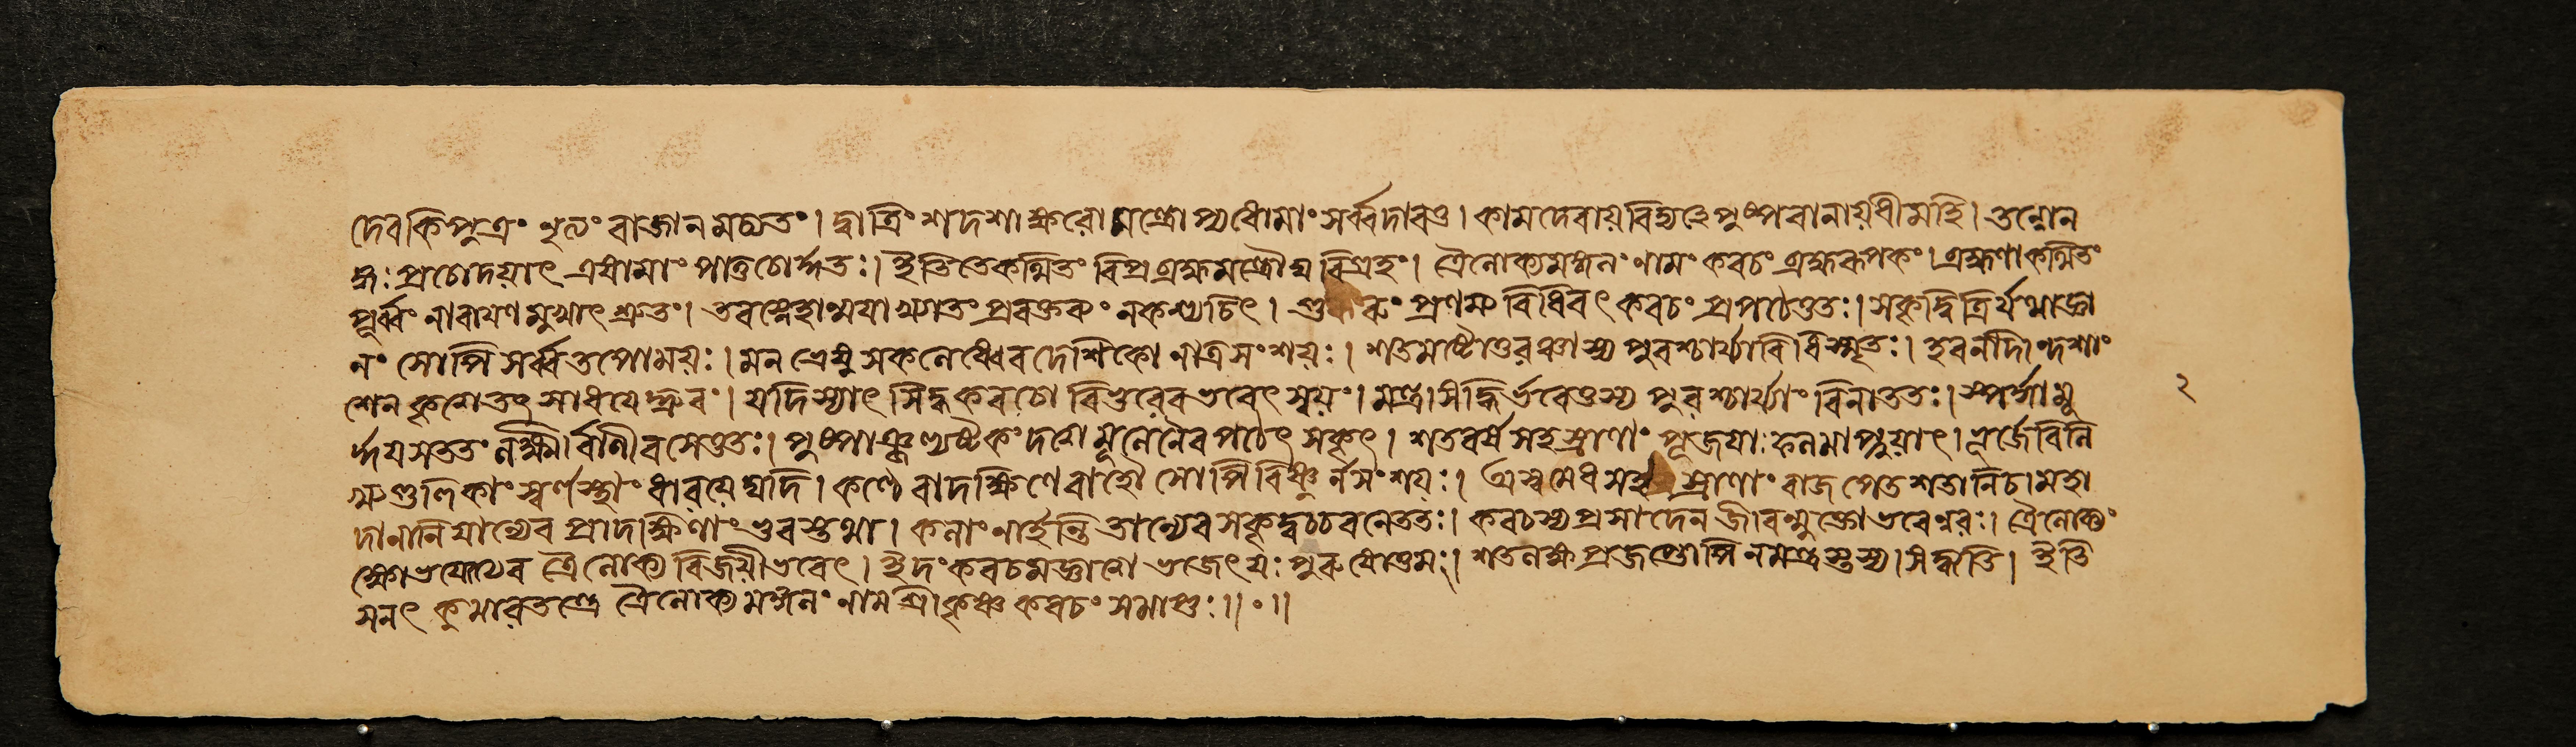 দেবকিপুত্রং স্থূলং ৰাজানমচ্যুতং। দ্বাত্রিংশদশাক্ষরো মন্ত্রোপ্যধোমাং সর্ব্বদাৰতু। কামদেবায় বিদ্মহে পুষ্পবানায় ধীমহি। তন্নোন
ঙ্গঃ প্রচোদয়াৎ এষামাং পাতু চোর্দ্ধতঃ। ইতি তেকথিতং বিপ্র ব্রহ্মমন্ত্রৌঘ বিগ্রহং। ত্রৈলোক্যমঙ্গলং ণামং কবচং ব্রহ্মৰূপকং। ব্রহ্মণা কথিতং
পূর্ব্বং নাৰায়ণ মুখাৎ শ্রুতং। তব স্নেহান্ময়াখ্যাতং প্রবক্তব্যং নকস্যচিৎ। গুৰুং প্রণম্য বিধিবৎ কবচং প্রপঠেত্ততঃ। সকৃদ্বিত্রির্যথাজ্ঞা
নং সোপি সর্ব্বতপোময়ঃ। মন্ত্রেষু সকলেষ্বেব দেশিকো নাত্র সংশয়ঃ। শতমষ্টোত্তৰঞ্চাস্য পুৰশ্চর্য্যা বিধিস্মৃতঃ। হবনাদি দশাং
শেন কৃত্বা তৎ সাধয়েদ্ধ্রুবং। যদি স্যাৎ সিদ্ধকবচো বিষ্ণুরেব ভবেৎ স্বয়ং। মন্ত্রসিদ্ধির্ভবেত্তস্য পুৰশ্চর্য্যাং বিনা ততঃ। স্পর্দ্ধামু
র্দ্ধয় সততং লক্ষ্মীর্বাণী বসেত্ততঃ। পুষ্পাঞ্জল্যষ্টকং দত্ত্বা মূলেনৈব পঠেৎ সকৃৎ। শতবর্ষ সহস্রাণাং পূজয়াঃ ফলমাপ্নুয়াৎ। ভূর্জে বিলি
খ্য গুলিকাং স্বর্ণস্থাং ধাৰয়েদ্যদি। কণ্ঠে বা দক্ষিণে বাহৌ সোপি বিষ্ণুর্নসংশয়ঃ। অশ্বমেধ সহস্রাণাং বাজপেয় শতানি চ। মহা
দানানি যান্যেব প্রাদক্ষিণাং ভুবস্তথা। কলাং নার্হন্তি তান্যেব সকৃদুচ্চৰনেততঃ। কবচস্য প্রসাদেন জীবন্মুক্তো ভবেন্নরঃ। ত্রৈলোক্যং
ক্ষোভয়ত্যেব ত্রৈলোক্য বিজয়ী ভবেৎ। ইদং কবচমজ্ঞাত্বা ভজেৎ যঃ পুৰুষোত্তমং। শতলক্ষং প্রজপ্তোপি ন মন্ত্রস্তস্য সিদ্ধ্যতি। ইতি
সনৎ কুমাৰতন্ত্রে ত্রৈলোক্যমঙ্গলং নাম শ্রীকৃষ্ণ কবচং সমাপ্তঃ।।০।।
২